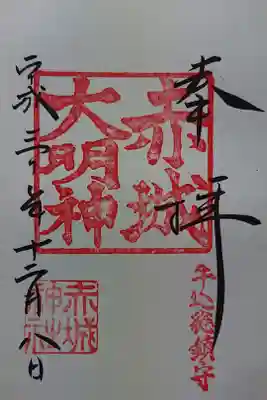 奉拝
牛込総鎮守
赤城
大明神
赤城
神社
平成三十年十二月八日